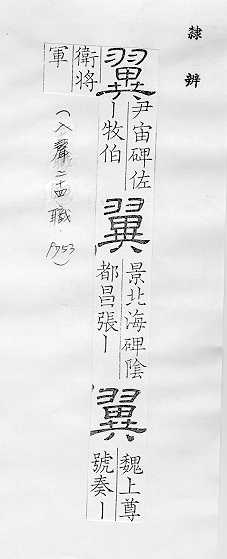 隸辨
翼
尹宙碑佐
丨牧伯
翼
景北海碑陰
都昌張丨
翼
魏上尊
號奏丨
衛將
軍
(入聲二十四職 P753)